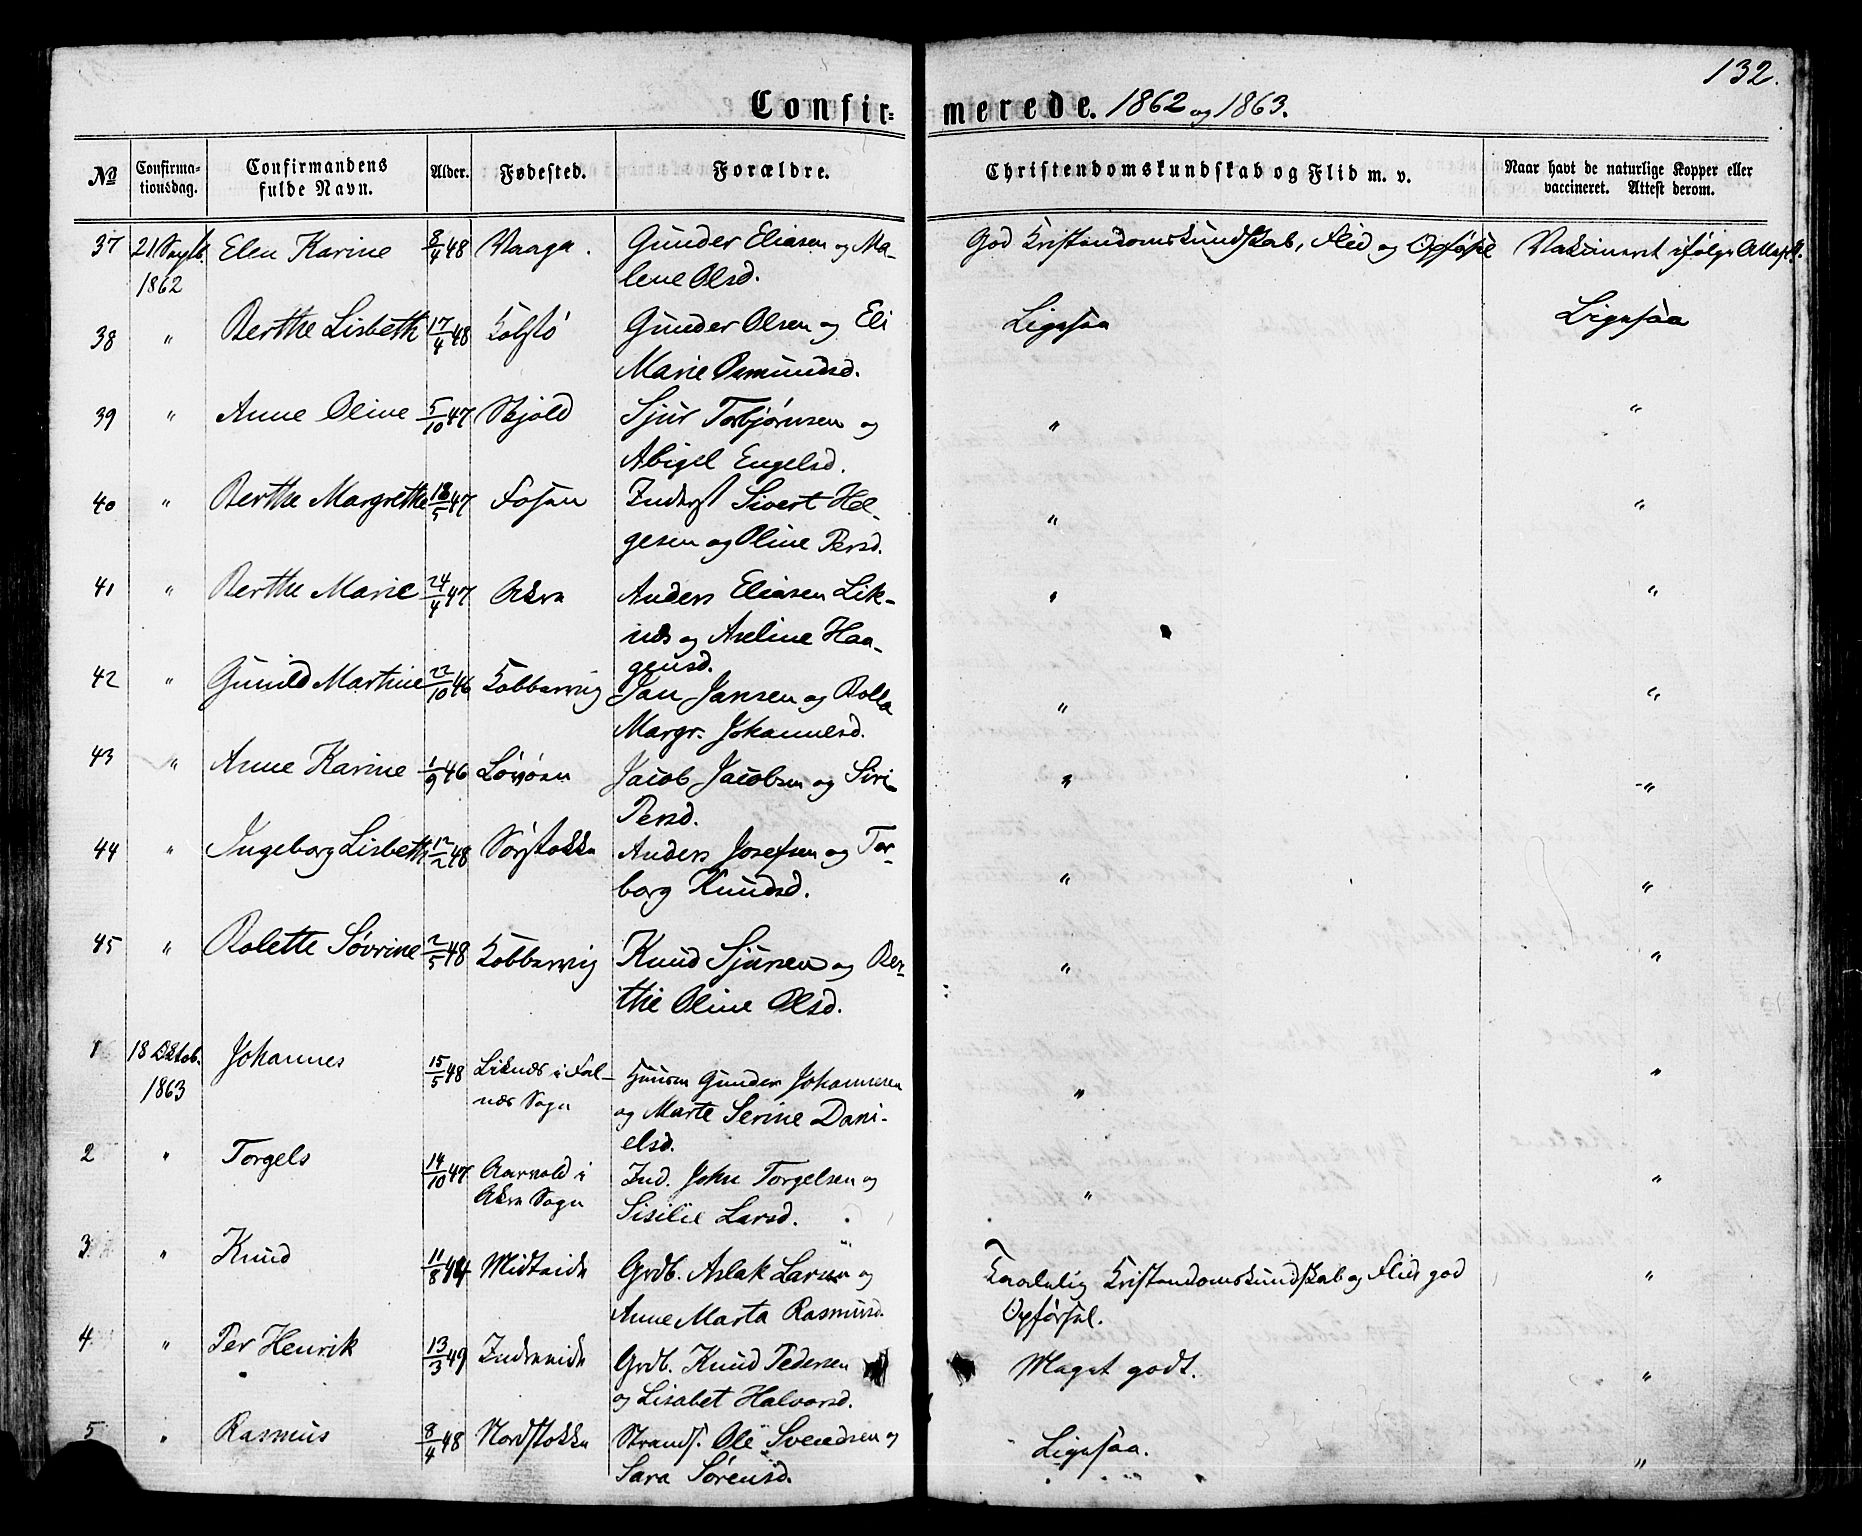 132.
Confir= merede. 1862 og 1863.
No
Confirma-
tionsdag.
Confirmandens
fulde Navn.
Alder.
Fødested.
Forældre.
Christendomskundskab og Flid m. v.
Naar havt de naturlige Kopper eller
vaccineret. Attest derom.
37 21 Septb. Elen Karine 8/4 48 Vaaga. Gunder Eliasen og Ma- God Kristendomskundskab, Flid og Opførsel Vakcineret ifølge Attest.
1862 lene Olsd.
38 " Berthe Lisbeth 17/4 48 Kolstø Gunder Olsen og Eli Ligesaa Ligesaa
Marie Osmundsd.
39 " Anne Oline 5/10 47 Skjold Sjur Torbjørnsen og " "
Abigel Engelsd.
40 " Berthe Margrethe 18/5 47 Fosen Inderst Sivert Hel- " "
gesen og Oline Persd.
41 " Berthe Marie 24/4 47 Akre Anders Eliasen Lik- " "
nes og Aseline Haa-
gensd.
42 " Gunild Martine 22/10 46 Kobbervig Jan Jansen og Bolla " "
Margr. Johannesd.
43 " Anne Karine 1/9 46 Løvøen Jacob Jacobsen og Siri " "
Persd.
44 " Ingeborg Lisbeth 12/2 48 Sørstokke Anders Josefsen og Tor- " "
borg Knudsd.
45 " Bolette Søvrine 2/5 48 Kobbervig Knud Sjursen og Ber- " "
the Oline Olsd.
1 18 Oktob. Johannes 15/5 48 Liknes i Fal- Huusm Gunder Johannesen " "
1863 nes Sogn og Marte Serine Dani-
elsd.
2 " Torgels 14/10 47 Aarvold i Ind. John Torgelsen og " "
Akre Sogn Sisilie Larsd.
3 " Knud 11/8 44 Midteide Grdb. Aslak Larsen og Taalelig Kristendomskundskab og Flid god "
Anne Marta Rasmusd. Opførsel.
4 " Per Henrik 13/3 49 Indreeide Grdb. Knud Pedersen Meget godt. "
og Lisabet Halvorsd.
5 " Rasmus 8/4 48 Nordstokke Strands. Ole Svendsen og Ligesaa. "
Sara Sørensd.